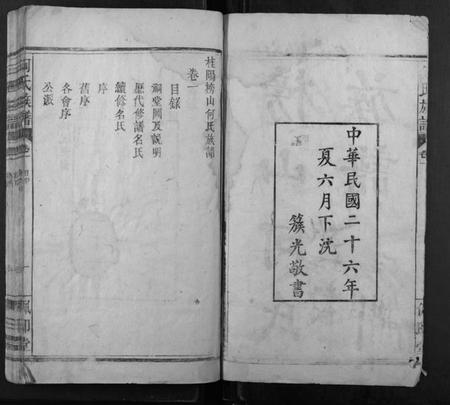 中華民國二十六年
夏六月下沈
簇光敬書
桂陽榜山何氏族譜
卷一
目錄
祠堂圖及說明
歷代修譜名氏
續修名氏
序
舊序
各會序
公派
何氏族譜
氏族譜